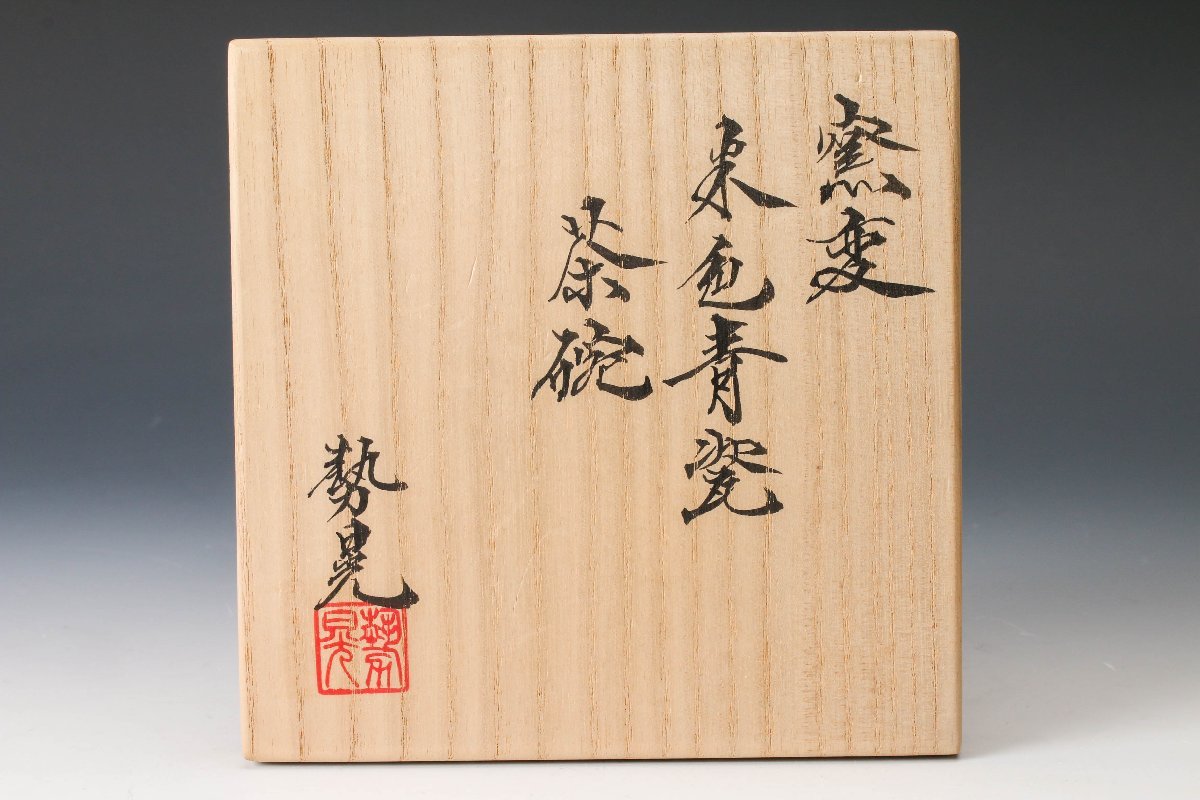 窯変
米色青瓷
茶碗
勢晃
勢晃